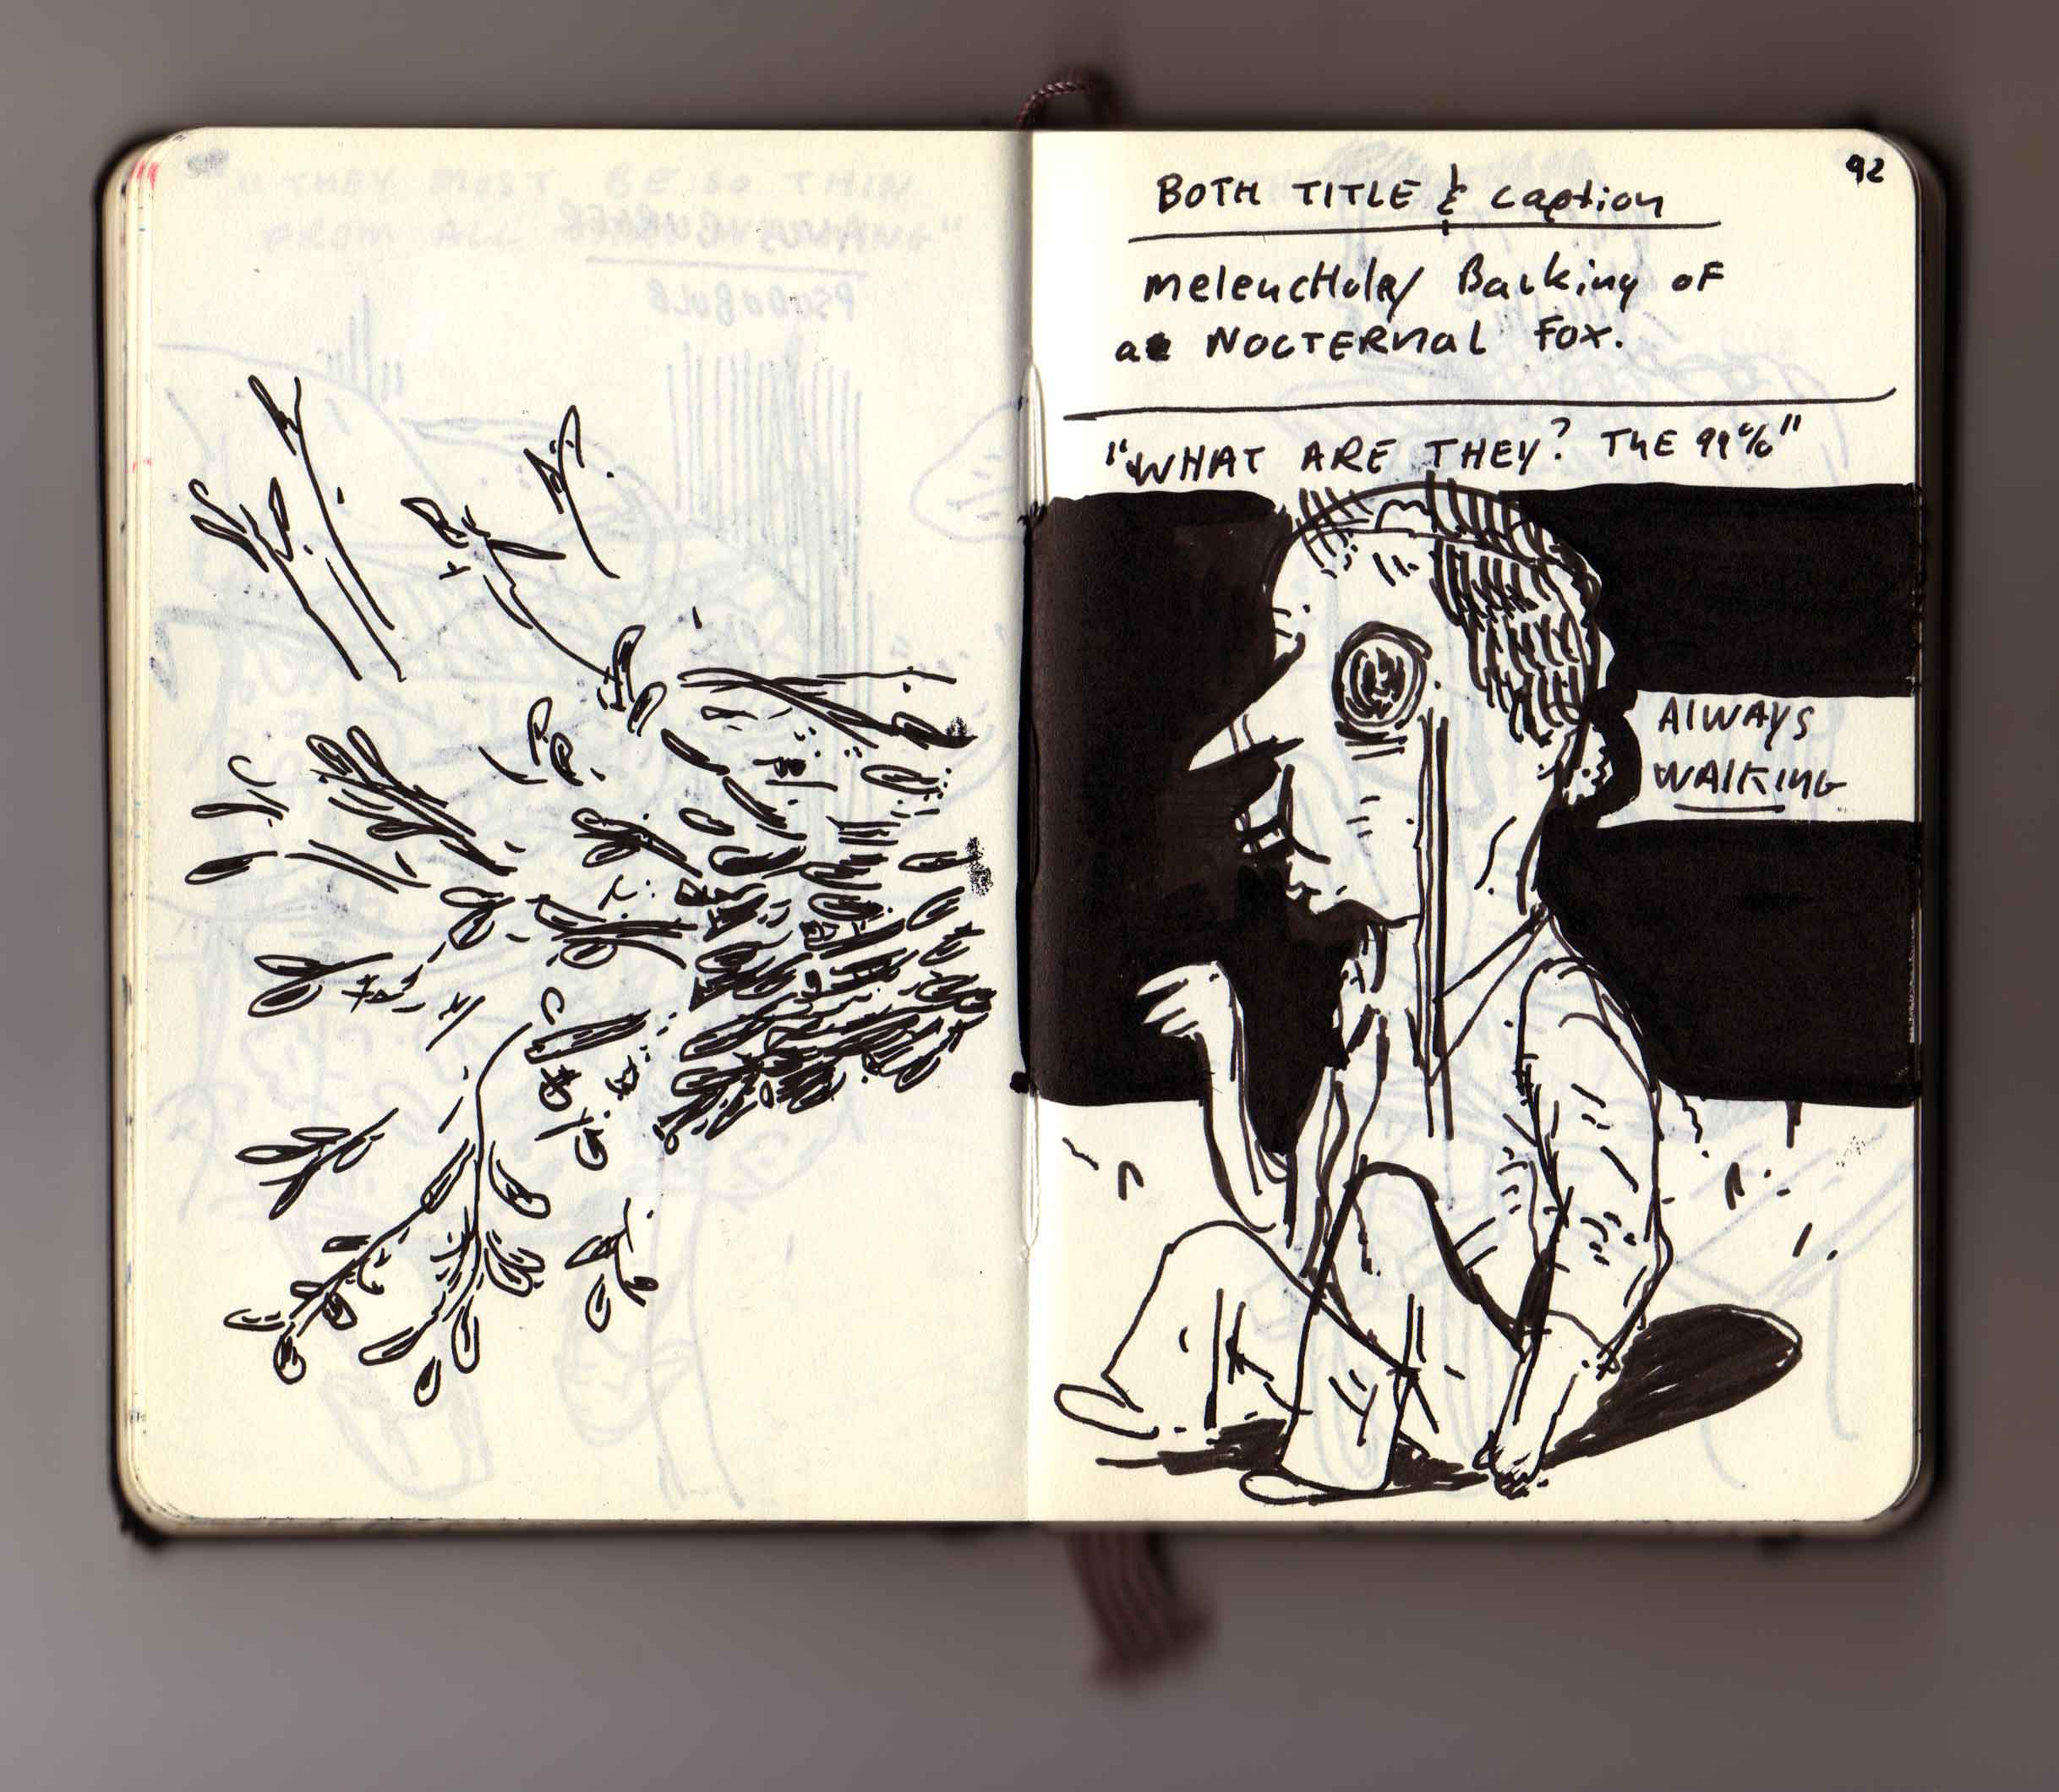 "THEY MUST BE SO THIN
FROM ALL
92
BOTH TITLE & caption
melencHoly Barking oF
a NOCTERNAL FOX.
"WHAT ARE THEY? THE 99%"
AlWAYS
WAlKING